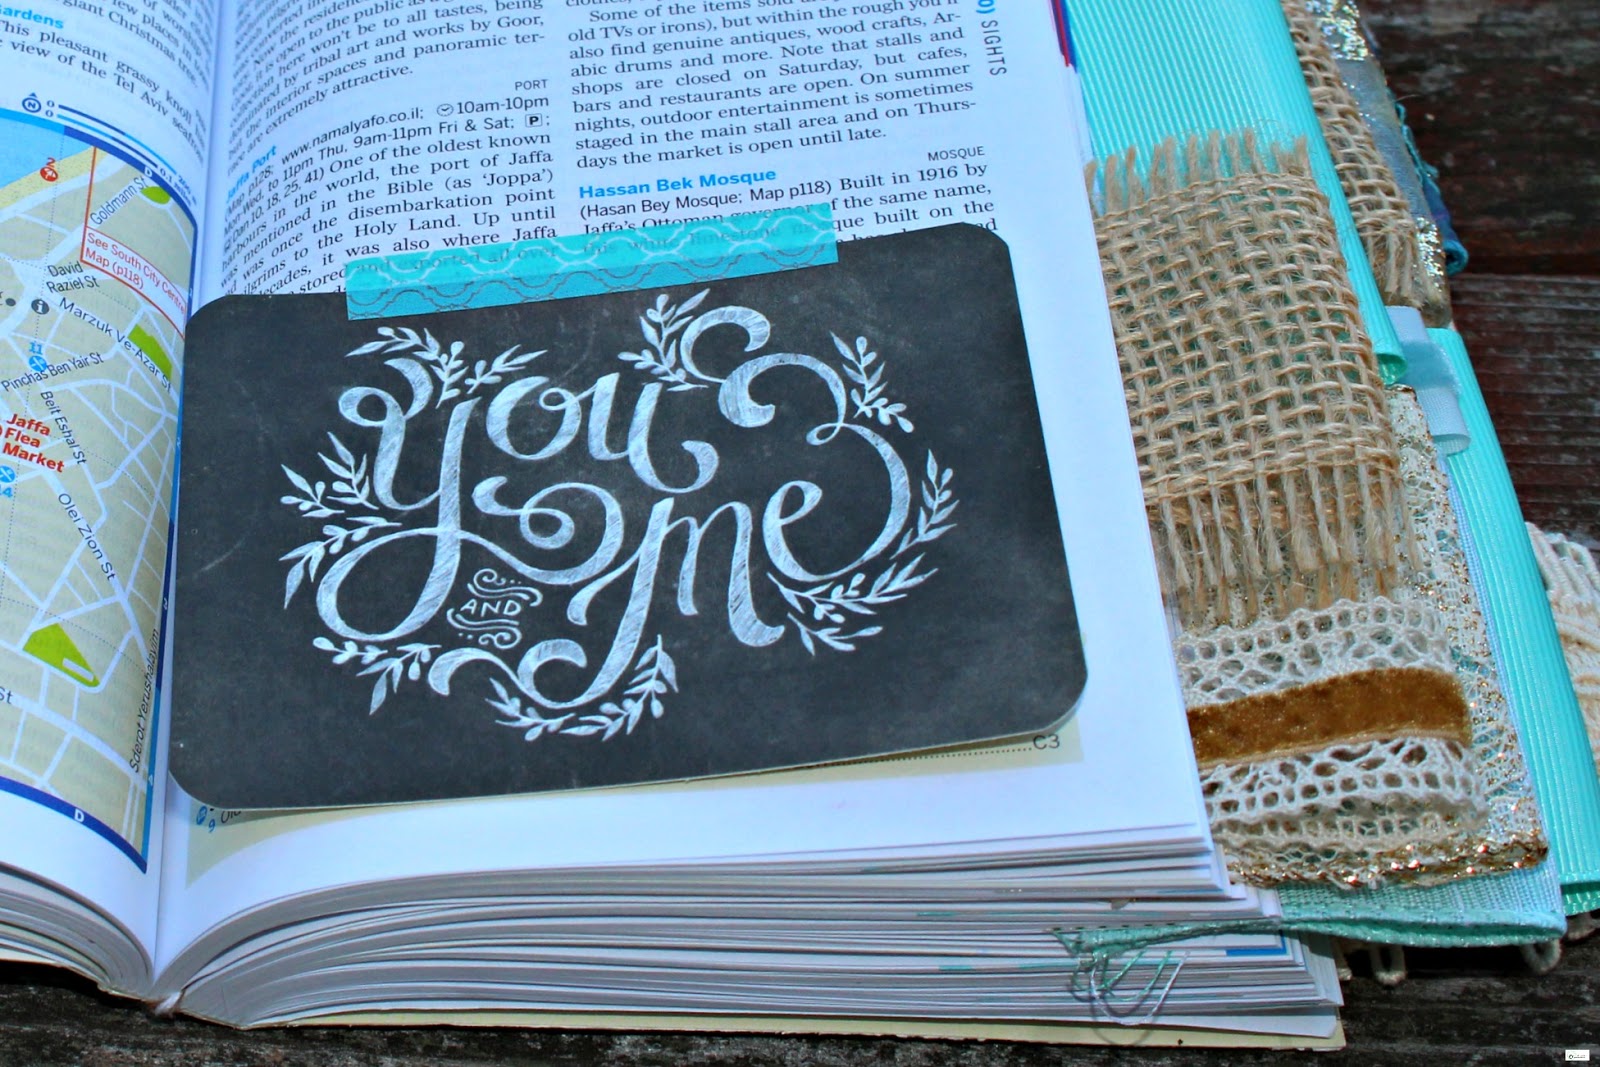 ardens
This pleasant grassy knoll has
e view of the Tel Aviv seafront
few places in town
giant Christmas tree
of worship
N
0
0
2
D
Goldmann St
See South City Centre
Map (p118)
David
Raziel St
Marzuk Ve-Azar St
11
Pinchas Ben Yair St
Beit Eshal St
Jaffa
Flea
Market
Olei Zion St
Sderot Yerushalayim
St
D
now the residence
it is open to the public as a g
here won't be to all tastes, being
dominated by tribal art and works by Goor,
the interior spaces and panoramic ter-
are extremely attractive.
Jaffa Port
PORT
(Map p128; www.namalyafo.co.il; 10am-10pm
Mon-Wed, to 11pm Thu, 9am-11pm Fri & Sat; P;
Dan 10, 18, 25, 41) One of the oldest known
harbours in the world, the port of Jaffa
was mentioned in the Bible (as 'Joppa')
was once the disembarkation point
ilgrims to the Holy Land. Up until
decades, it was also where Jaffa
stored and exported all over
Some of the items sold are
old TVs or irons), but within the rough you'll
also find genuine antiques, wood crafts, Ar-
abic drums and more. Note that stalls and
shops are closed on Saturday, but cafes,
bars and restaurants are open. On summer
nights, outdoor entertainment is sometimes
staged in the main stall area and on Thurs-
days the market is open until late.
Hassan Bek Mosque
MOSQUE
(Hasan Bey Mosque; Map p118) Built in 1916 by
Jaffa's Ottoman governor of the same name,
this white limestone mosque built on the
SIGHTS
You
AND
me
C3
9